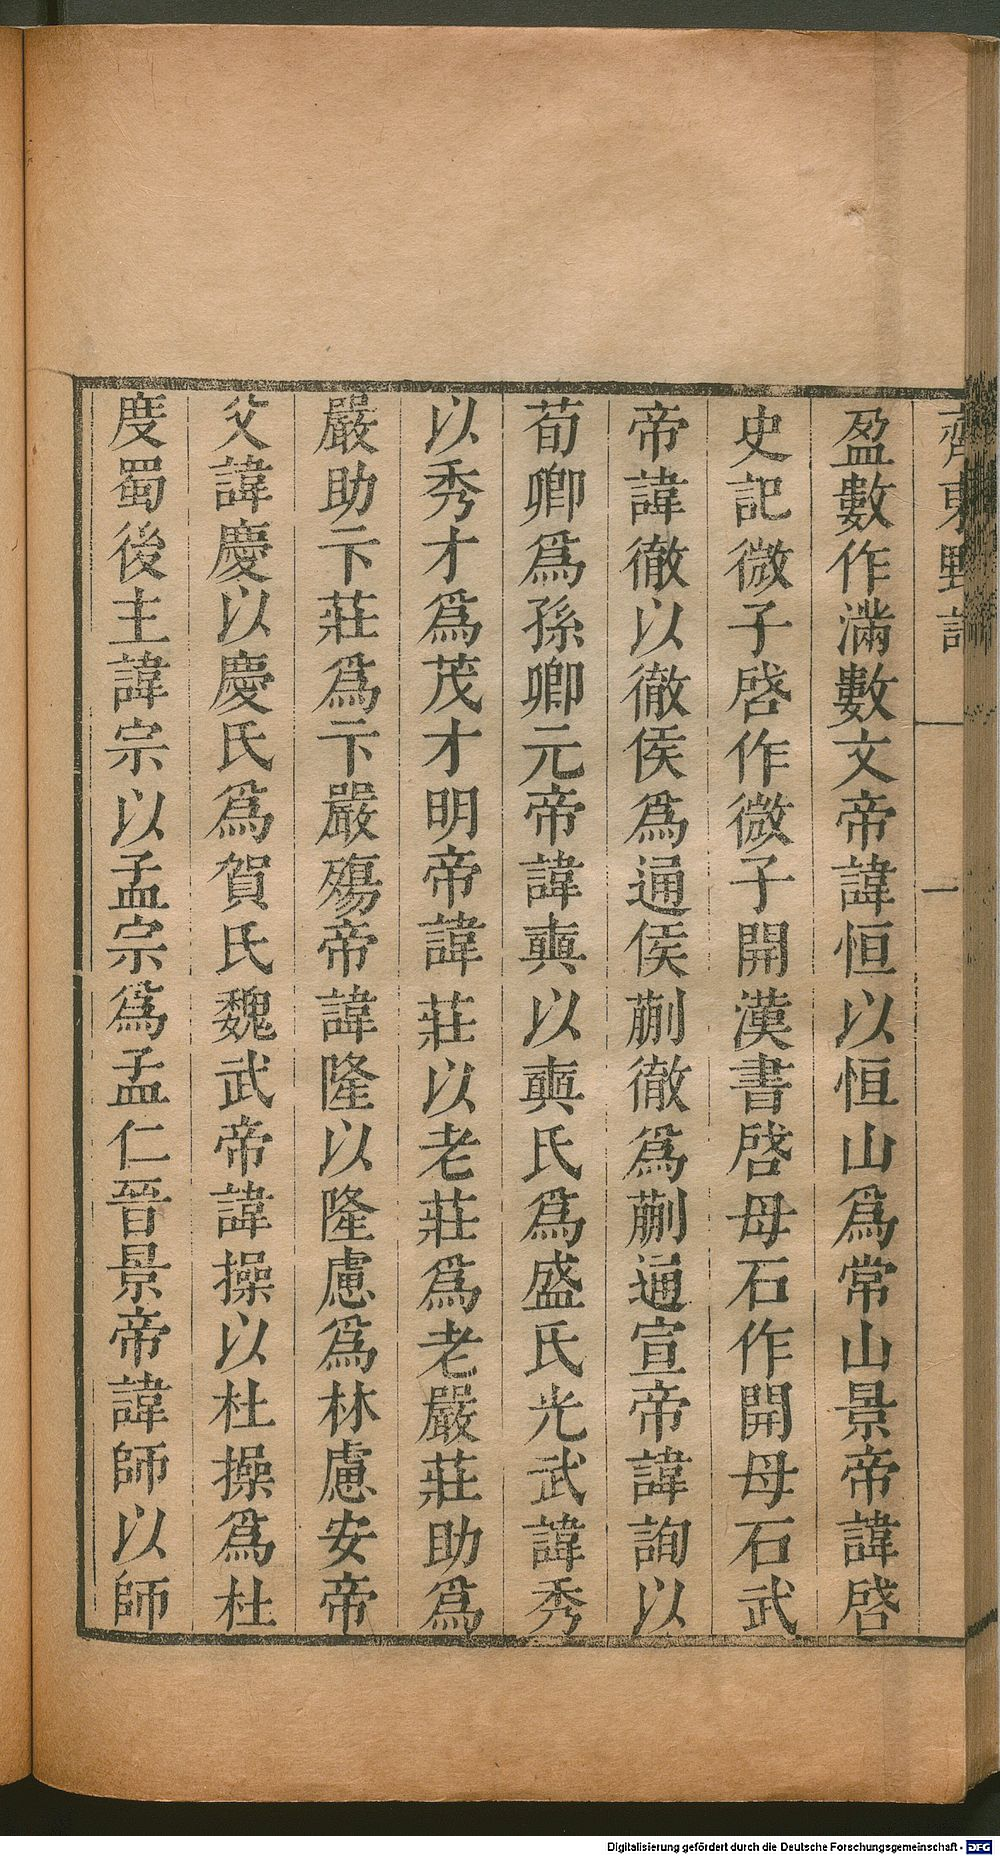 齊東野語
一
盈數作滿數文帝諱恒以恒山爲常山景帝諱啓
史記微子啓作微子開漢書啓母石作開母石武
帝諱徹以徹侯爲通侯蒯徹爲蒯通宣帝諱詢以
荀卿爲孫卿元帝諱奭以奭氏爲盛氏光武諱秀
以秀才爲茂才明帝諱莊以老莊爲老嚴莊助爲
嚴助卞莊爲卞嚴殤帝諱隆以隆慮爲林慮安帝
父諱慶以慶氏爲賀氏魏武帝諱操以杜操爲杜
度蜀後主諱宗以孟宗爲孟仁晉景帝諱師以師
Digitalisierung gefördert durch die Deutsche Forschungsgemeinschaft - DFG